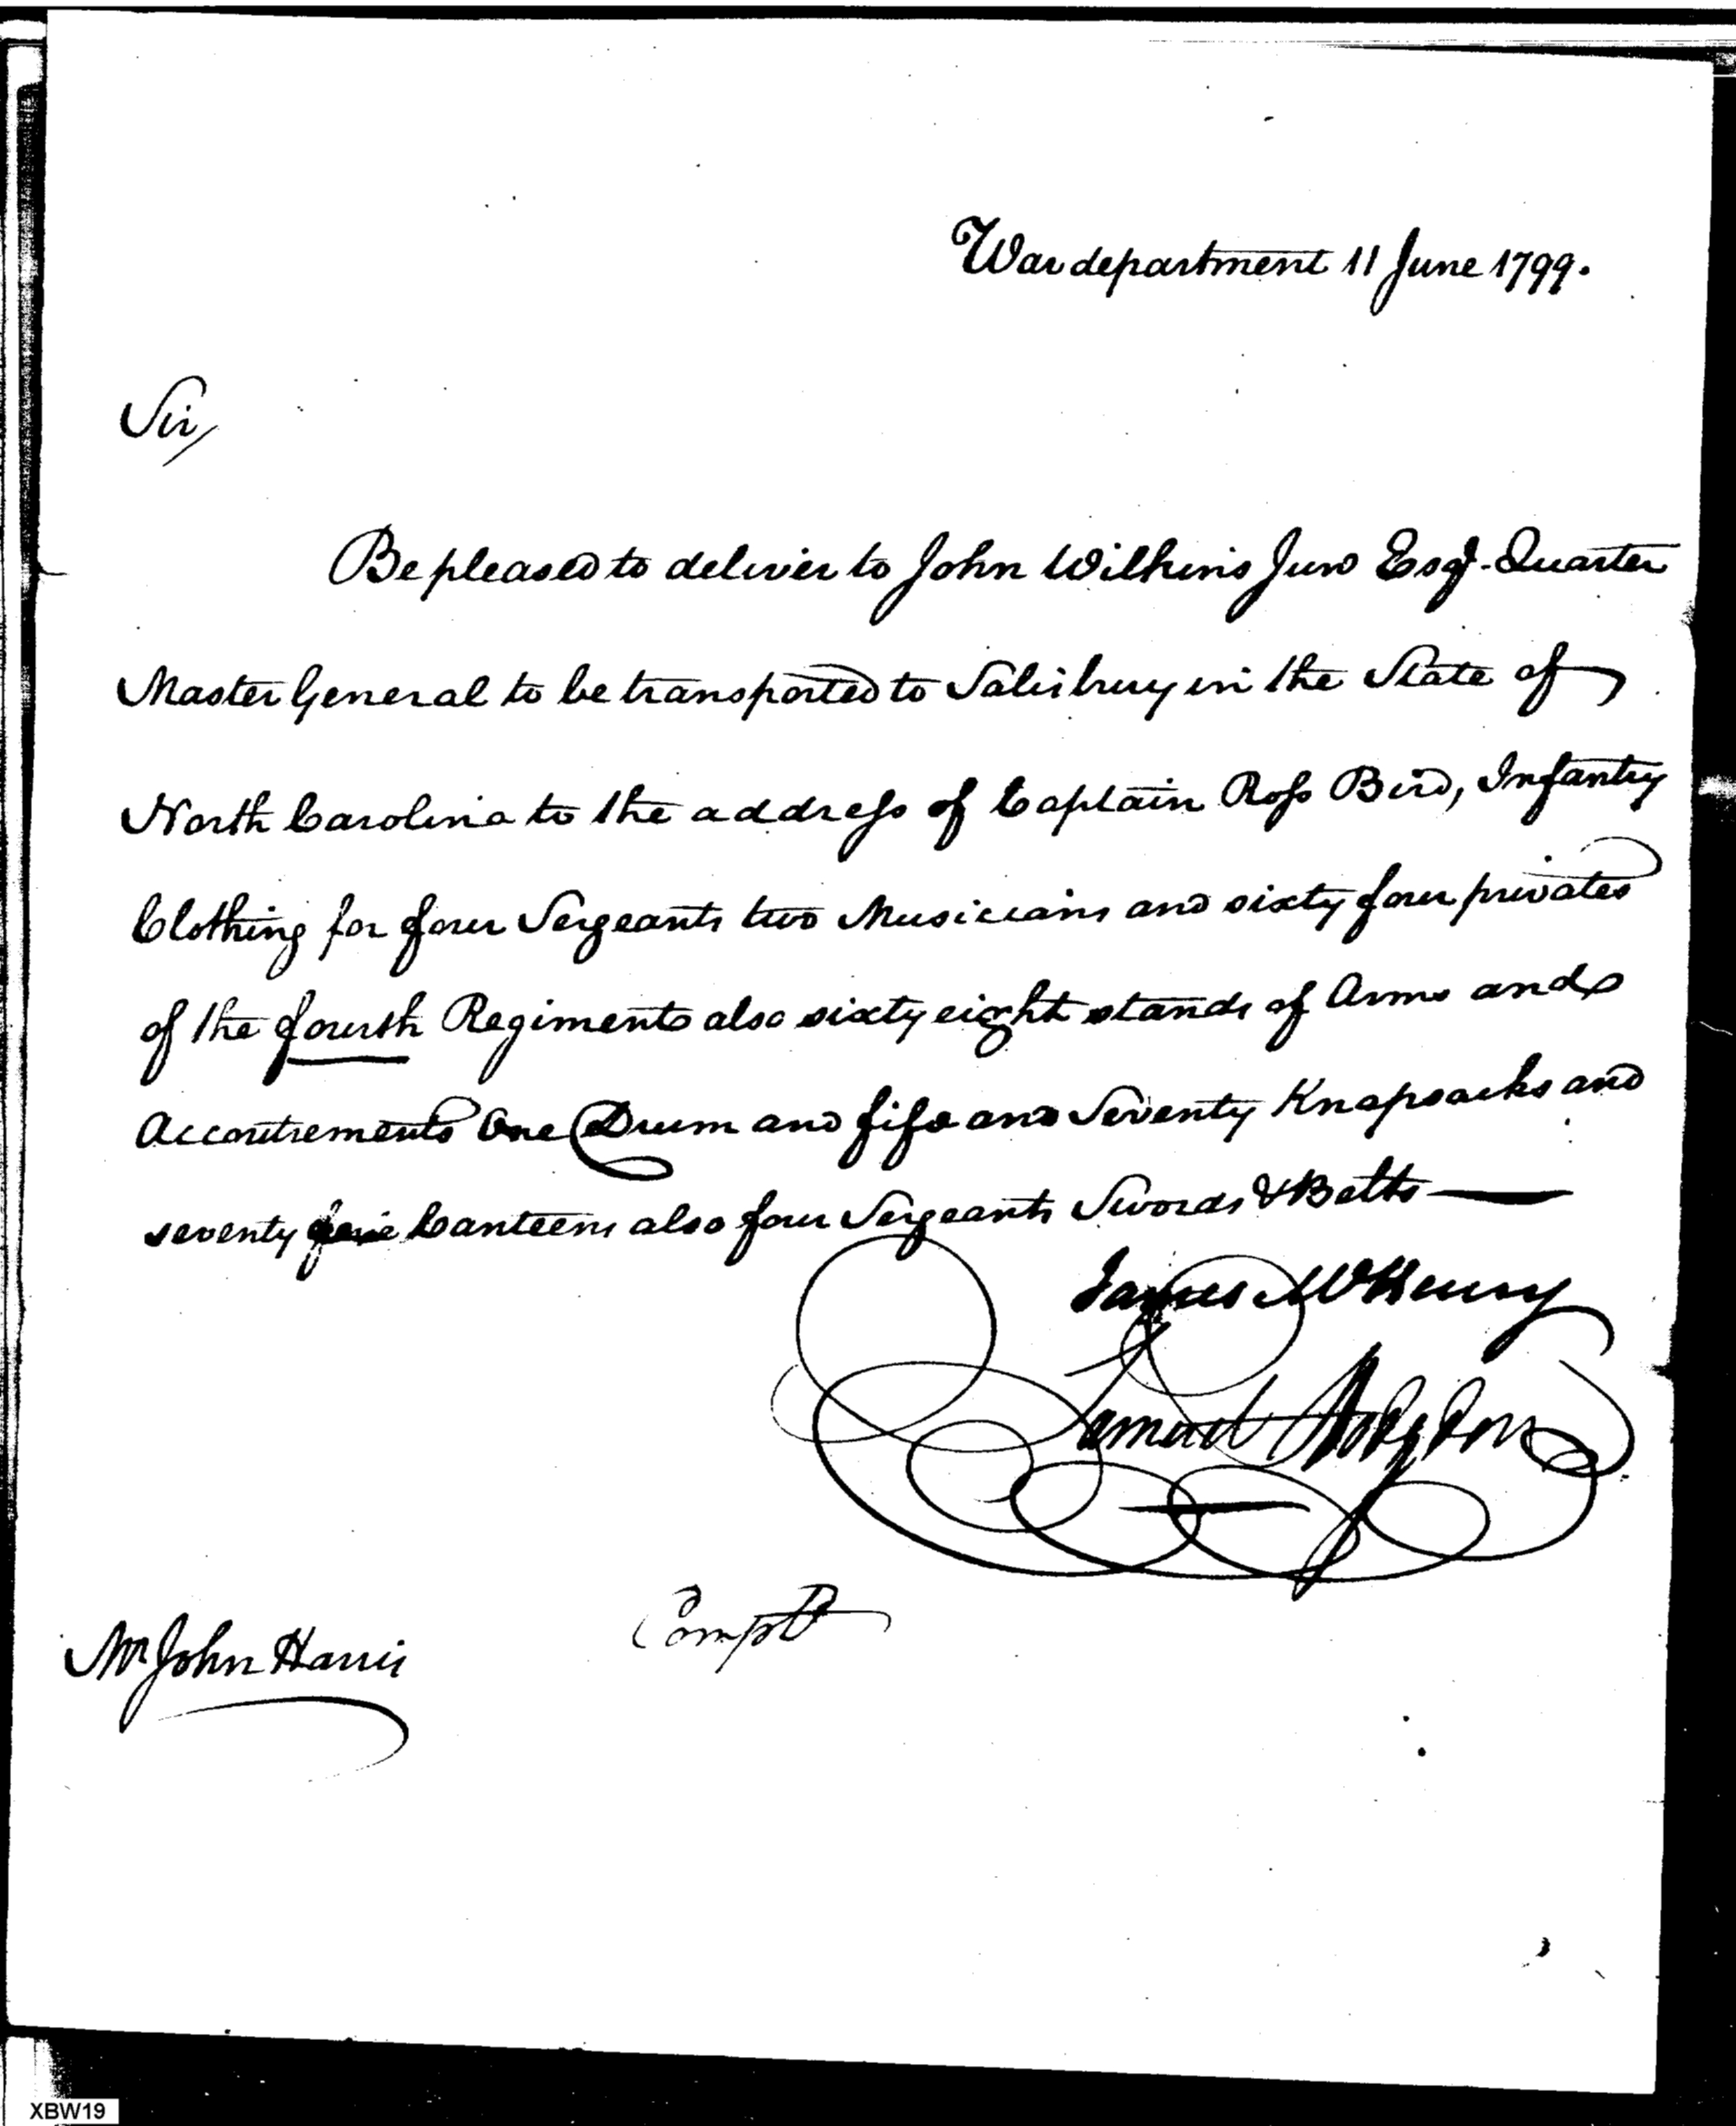 War department 11 June 1799.
Sir,
Be pleased to deliver to John Wilkins Junr Esqr. Quarter
Master General to be transported to Salisbury in the State of
North Carolina to the address of Captain Ross Bird, Infantry
Clothing for four Sergeants two Musicians and sixty four privates
of the fourth Regiment also sixty eight stands of Arms and
Accoutrements One Drum and fife and Seventy Knapsacks and
seventy five Canteens also four Sergeants Swords & Belts
James McHenry
Samuel Hodgdon
Compt
Mr John Harris
XBW19